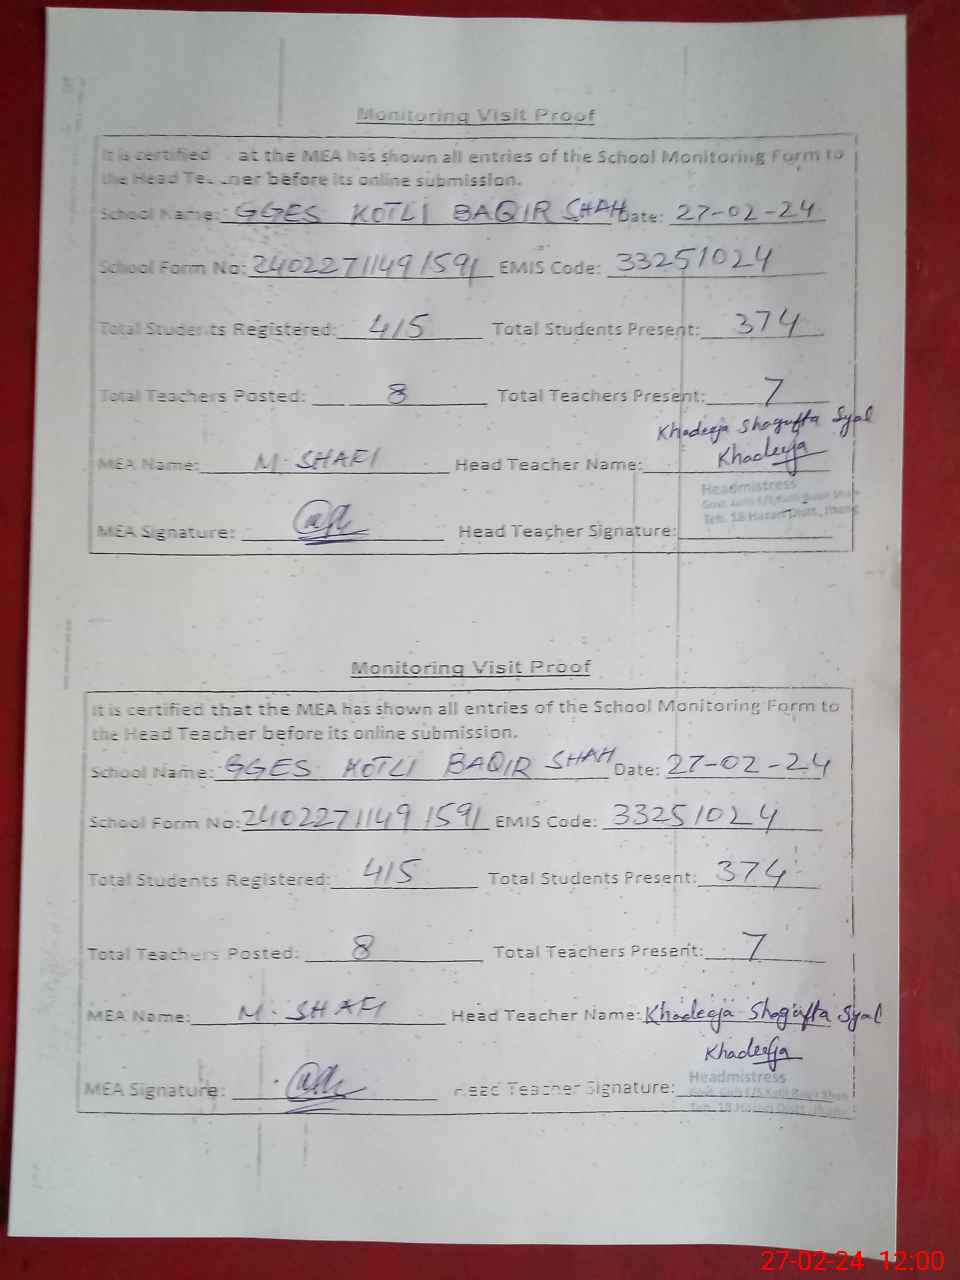 Monitoring Visit Proof
It is certified at the MEA has shown all entries of the School Monitoring Form to
the Head Te ner before its online submission.
School Name: GGES KOTLI BAQIR SHAH Date: 27-02-24
School Form No: 24022711491591 EMIS Code: 33251024
Total Students Registered: 415 Total Students Present: 374
Total Teachers Posted: 8 Total Teachers Present: 7
Khadeeja Shagufta Syal
MEA Name: M. SHAFI Head Teacher Name: Khadeeja
Headmistress
Teh. 18 Hazari Distt. Jhang
MEA Signature: Head Teacher Signature:
Monitoring Visit Proof
It is certified that the MEA has shown all entries of the School Monitoring Form to
the Head Teacher before its online submission.
School Name: GGES KOTLI BAQIR SHAH Date: 27-02-24
School Form No: 24022711491591 EMIS Code: 33251024
Total Students Registered: 415 Total Students Present: 374
Total Teachers Posted: 8 Total Teachers Present: 7
MEA Name: M. SHAFI Head Teacher Name: Khadeeja Shagufta Syal
Khadeeja
MEA Signature: Head Teacher Signature: Headmistress
Teh. 18 Hazari Distt. Jhang
27-02-24 12:00